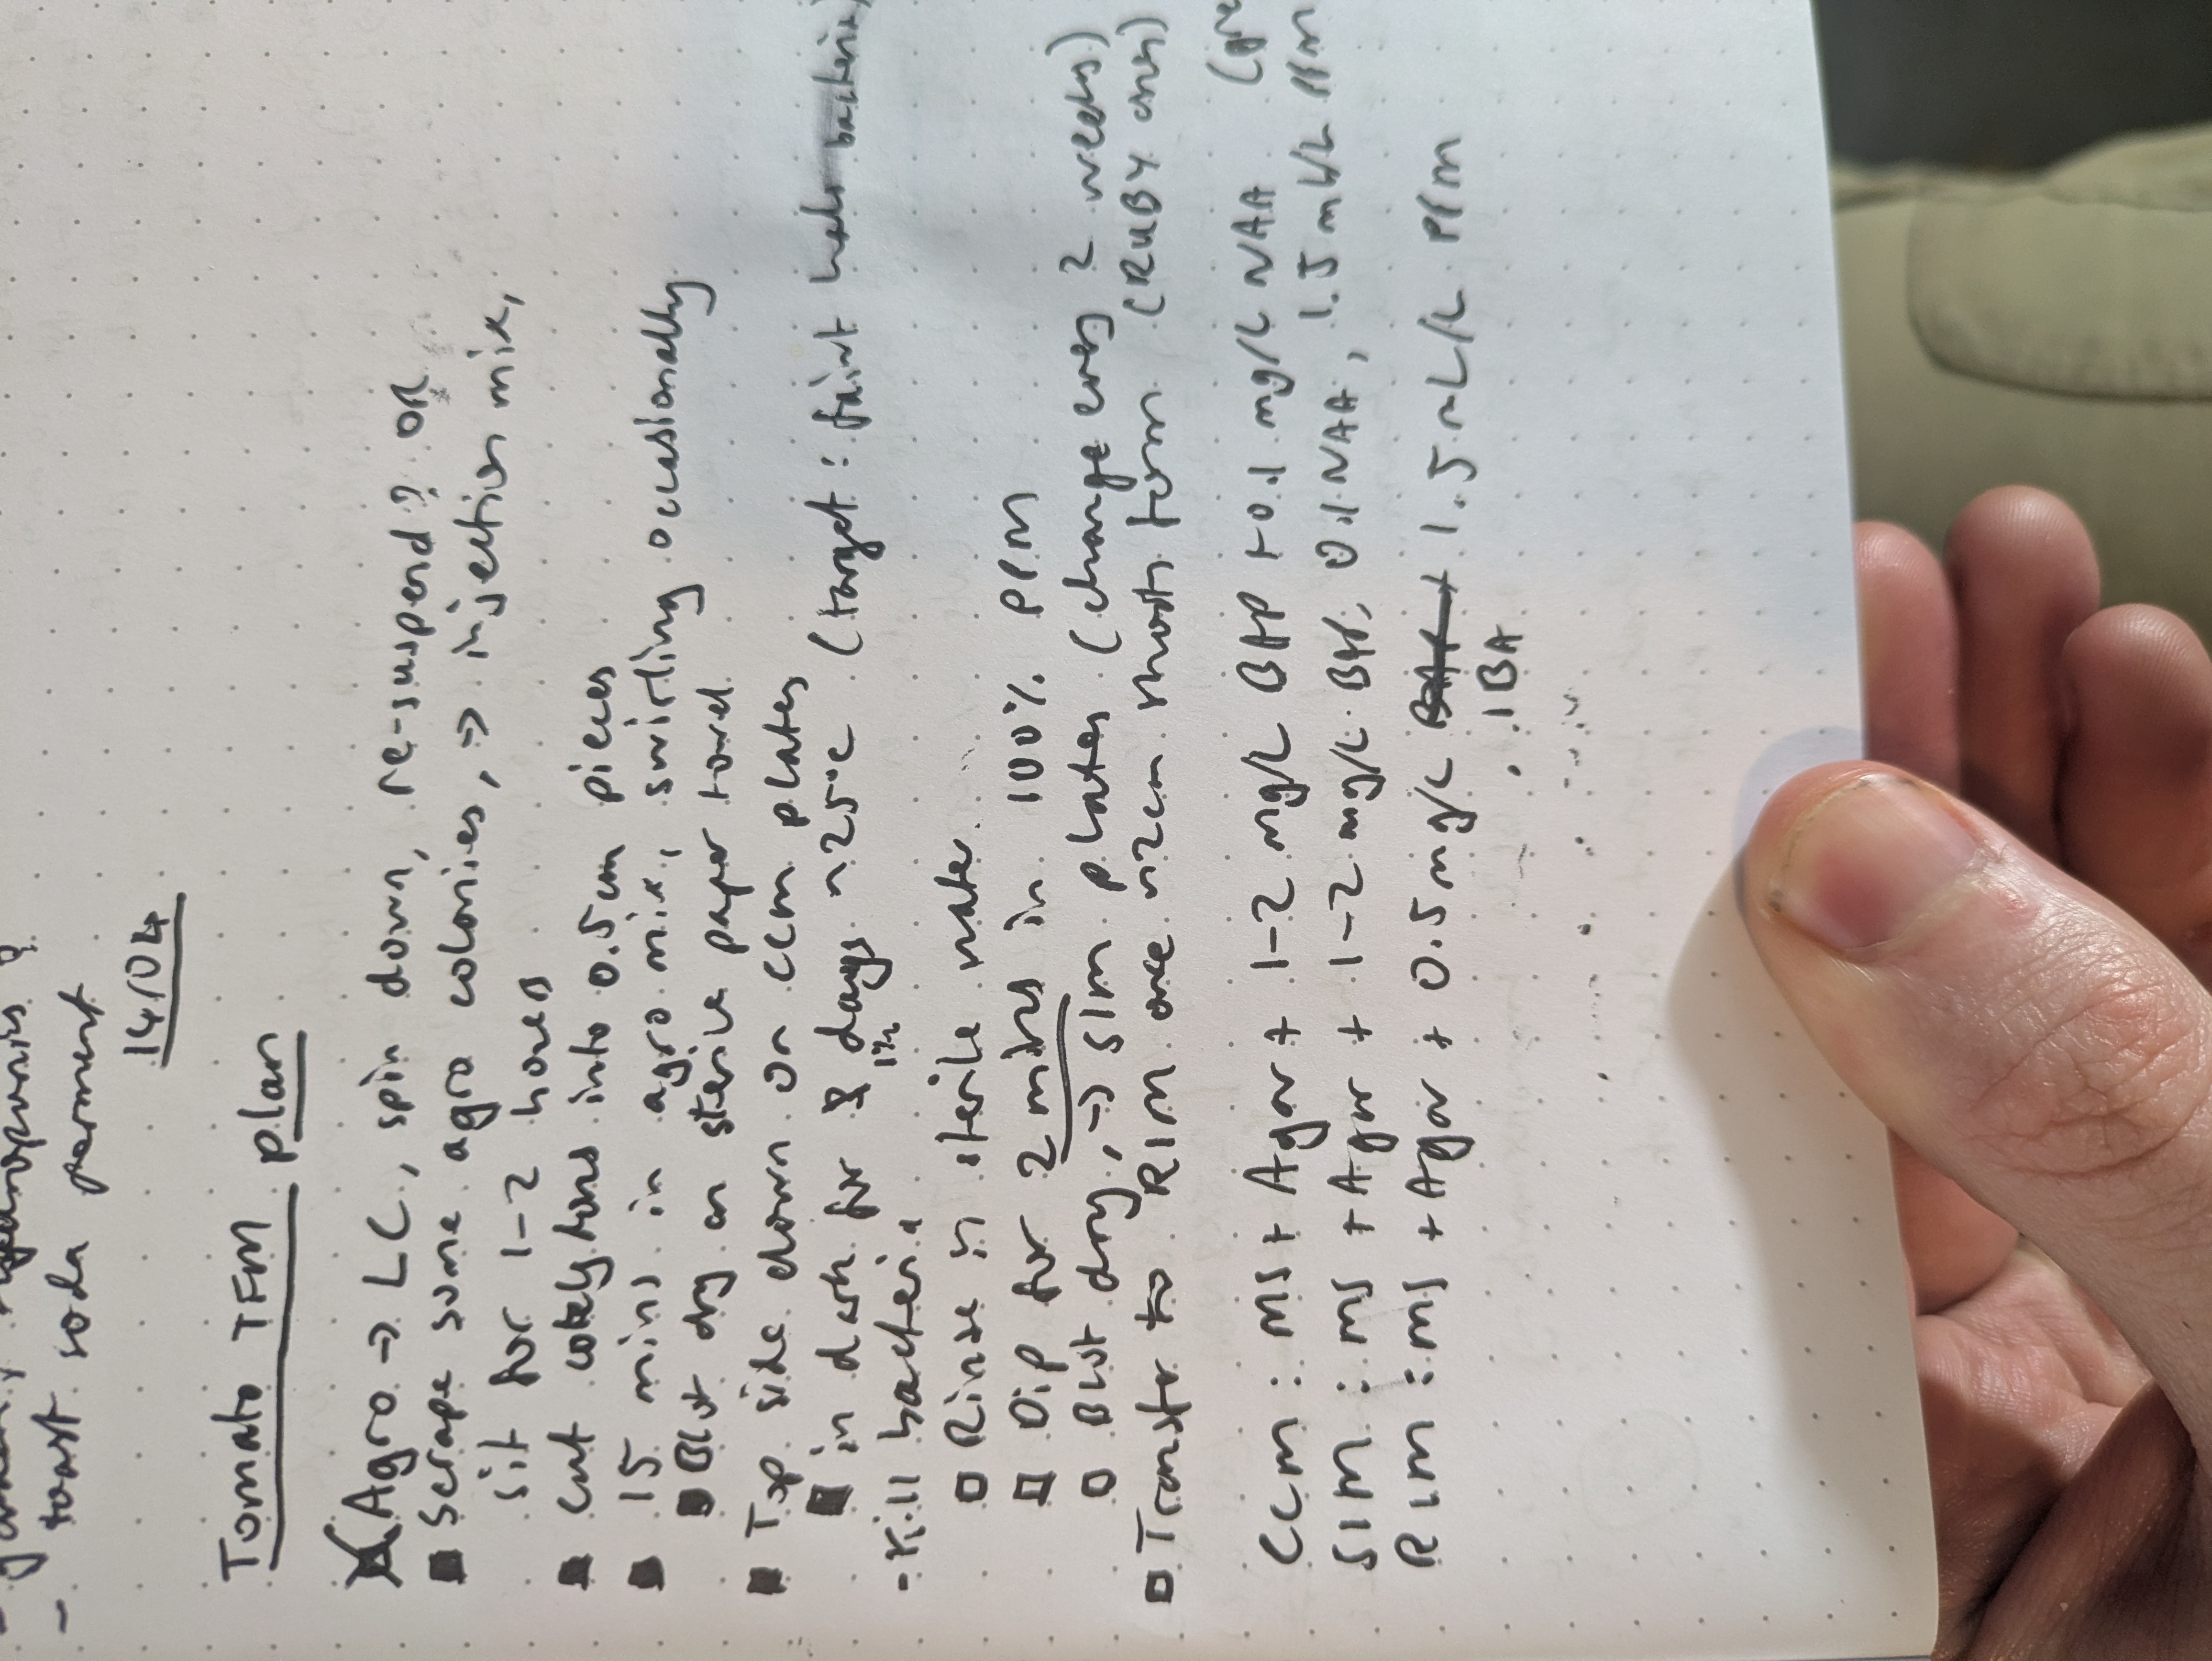 - toast soda ferment
14/04
Tomato TFM plan
Agro → LC, spin down, re-suspend? OR
Scrape some agro colonies, → injection mix,
sit for 1-2 hours
cut cotyledons into 0.5cm pieces
15 mins in agro mix, swirling occasionally
Blot dry on sterile paper towel
Top side down on CCM plates
in dark for 2 days ~25°C (target: faint halo bacteria)
- Kill bacteria
Rinse in sterile water
Dip for 2 mins in 100% PPM
Blot dry, → SIM plates (change every 2 weeks)
Transfer to RIM once ~2cm shoots form (RUBY ones)
CCM: MS + Agar + 1-2 mg/L BAP + 0.1 mg/L NAA
SIM: MS + Agar + 1-2 mg/L BAP, 0.1 NAA, 1.5 mL/L PPM
RIM: MS + Agar + 0.5 mg/L BAP + 1.5 mL/L PPM
IBA